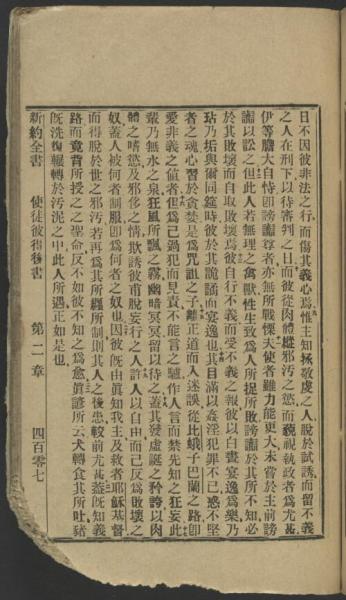 日不因彼非法之行而傷其義心焉惟主知拯敬虔之人脫於試誘而留不義
之人在刑下以待審判之日而彼從肉體縱邪汚之慾而藐視執政者爲尤甚
伊等膽大自恃卽謗讟尊者亦無所戰慄天使者雖力能更大未嘗於主前謗
讟以訟之但此人若無理之禽獸性生致爲人所捉所敗謗讟於其所不知必
於其敗壞而自取敗壞焉彼自行不義而受不義之報彼以白晝宴逸爲樂乃
玷乃垢與爾同筵時彼於其詭譎而宴逸也其目滿以姦淫犯罪不已惑不堅
者之魂心習於貪婪是爲咒詛之子離正道而入迷誤從比蛾子巴蘭之路卽
愛非義之値者但爲己過犯而見責不能言之驢作人言而禁先知之狂妄此
輩乃無水之泉狂風所飄之霧幽暗冥冥留以待之蓋其發虛誕之矜誇以肉
體之嗜慾及邪侈之情欺誘彼甫脫妄行之人許人以自由而己反爲敗壞之
奴蓋人被何者制服卽爲何者之奴也因彼旣由眞知我主及救者耶穌基督
而得脫於世之邪汚若再爲其所纏所制則其人之後患較前尤甚蓋旣知義
路而竟背所授之之聖命反不如彼不知之爲愈眞諺所云犬轉食其所吐豬
旣洗復輾轉於汚泥之中此人所遇正如是也
新約全書 使徒彼得後書 第二章 四百零七